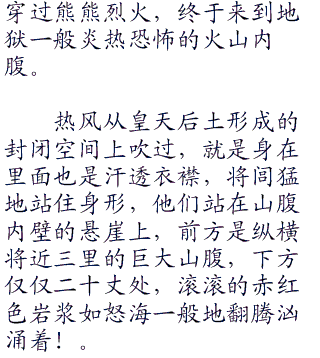 穿过熊熊烈火，终于来到地
狱一般炎热恐怖的火山内
腹。
热风从皇天后土形成的
封闭空间上吹过，就是身在
里面也是汗透衣襟，将闾猛
地站住身形，他们站在山腹
内壁的悬崖上，前方是纵横
将近三里的巨大山腹，下方
仅仅二十丈处，滚滚的赤红
色岩浆如怒海一般地翻腾汹
涌着！。